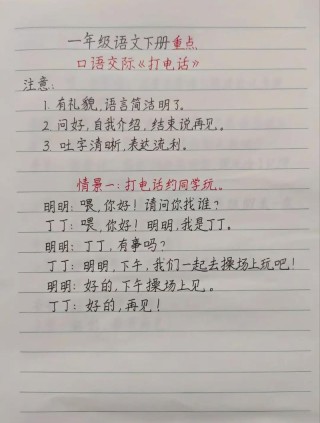 一年级语文下册重点
口语交际《打电话》
注意:
1. 有礼貌,语言简洁明了。
2. 问好,自我介绍,结束说再见。
3. 吐字清晰,表达流利。
情景一:打电话约同学玩。
明明:喂,你好!请问你找谁?
丁丁:喂,你好!明明,我是丁丁。
明明:丁丁,有事吗?
丁丁:明明,下午,我们一起去操场上玩吧!
明明:好的,下午操场上见。
丁丁:好的,再见!